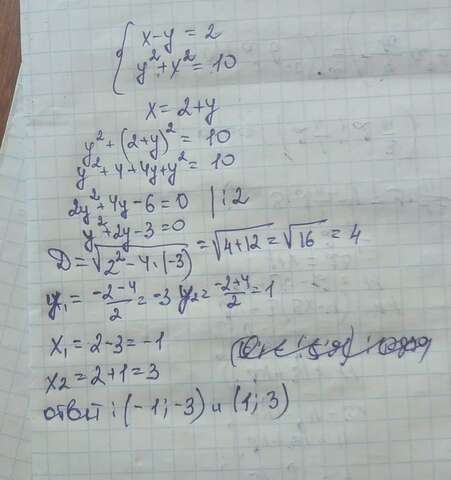 x-y=2
y²+x²=10
x=2+y
y²+(2+y)²=10
y²+4+4y+y²=10
2y²+4y-6=0 |:2
y²+2y-3=0
D=√(2²-4·(-3))=√(4+12)=√16=4
y₁=(-2-4)/2=-3 y₂=(-2+4)/2=1
x₁=2-3=-1
x₂=2+1=3
ответ:(-1;-3) и (1;3)